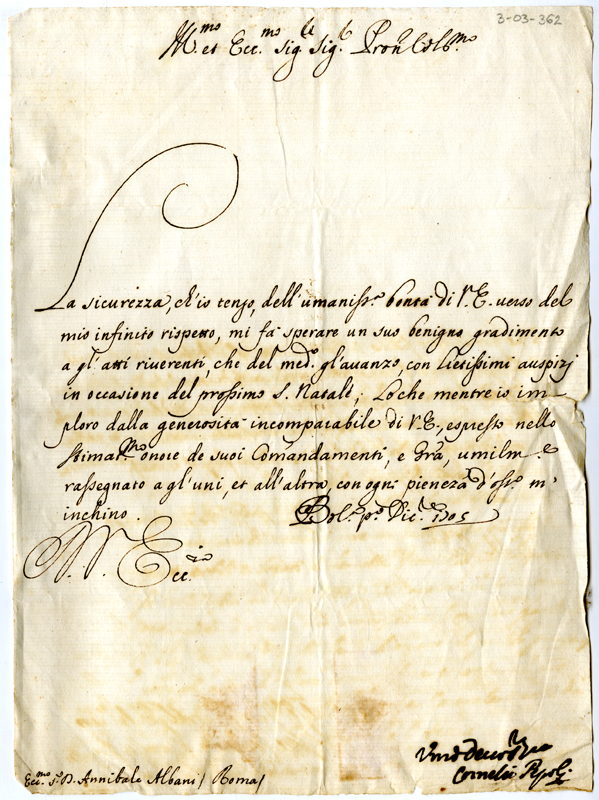 3-03-362
Ill.mo et Ecc.mo Sig.re Sig.r Pron Col.mo
La sicurezza, ch'io tengo, dell'umaniss.a bontà di V.E. verso del
mio infinito rispetto, mi fà sperare un suo benigno gradimento
a gl'atti riverenti, che del med.o gl'avanzo, con lietissimi auspizj
in occasione del prossimo S. Natale; Loche mentre io im-
ploro dalla generosità incomparabile di V.E., espresso nello
stimat.mo onore de suoi Comandamenti, e Gra, umilm.e
rassegnato a gl'uni, et all'altra, con ogni pieneza d'oss.a m'
inchino. Bol.a p.o Dic.e 1705
Ecc.za
Ecc.mo S.D. Annibale Albani / Roma /
Cornelio Pepoli